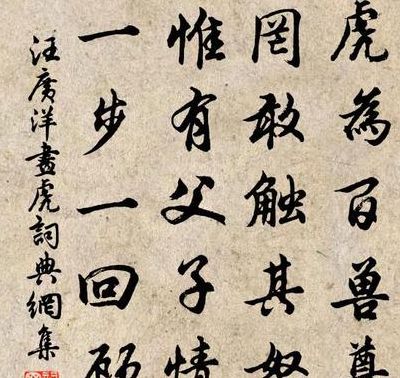 虎為百兽尊
罔敢触其怒
惟有父子情
一步一回顾
汪廣洋畫虎詞典網集